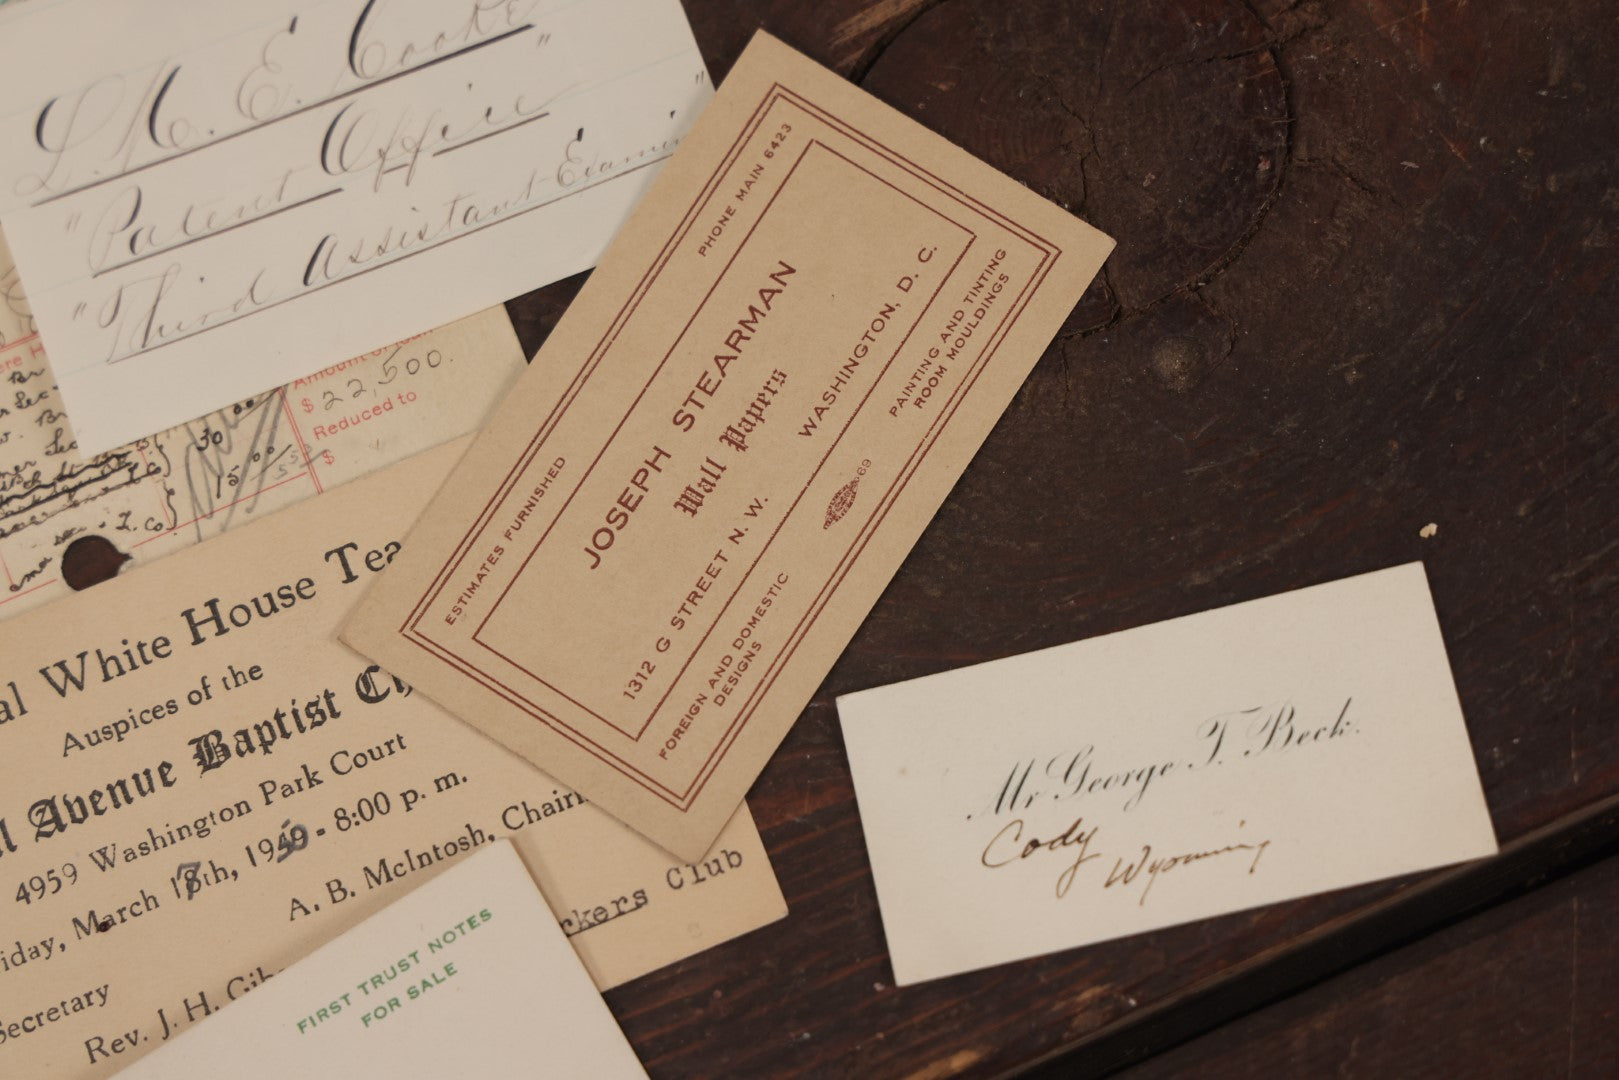 L. M. E. Cooke
"Patent Office"
"Third Assistant Examiner"
Amount of
$ 22,500.
Reduced to
$
30
15.00
PHONE MAIN 6423
ESTIMATES FURNISHED
JOSEPH STEARMAN
Wall Papers
1312 G STREET N. W. WASHINGTON, D. C.
FOREIGN AND DOMESTIC
DESIGNS
69
PAINTING AND TINTING
ROOM MOULDINGS
al White House Tea
Auspices of the
l Avenue Baptist Ch
4959 Washington Park Court
iday, March 17th, 1950 - 8:00 p. m.
A. B. McIntosh, Chairm
rkers Club
Secretary
Rev. J. H. Gibs
FIRST TRUST NOTES
FOR SALE
Mr George T. Beck.
Cody
Wyoming